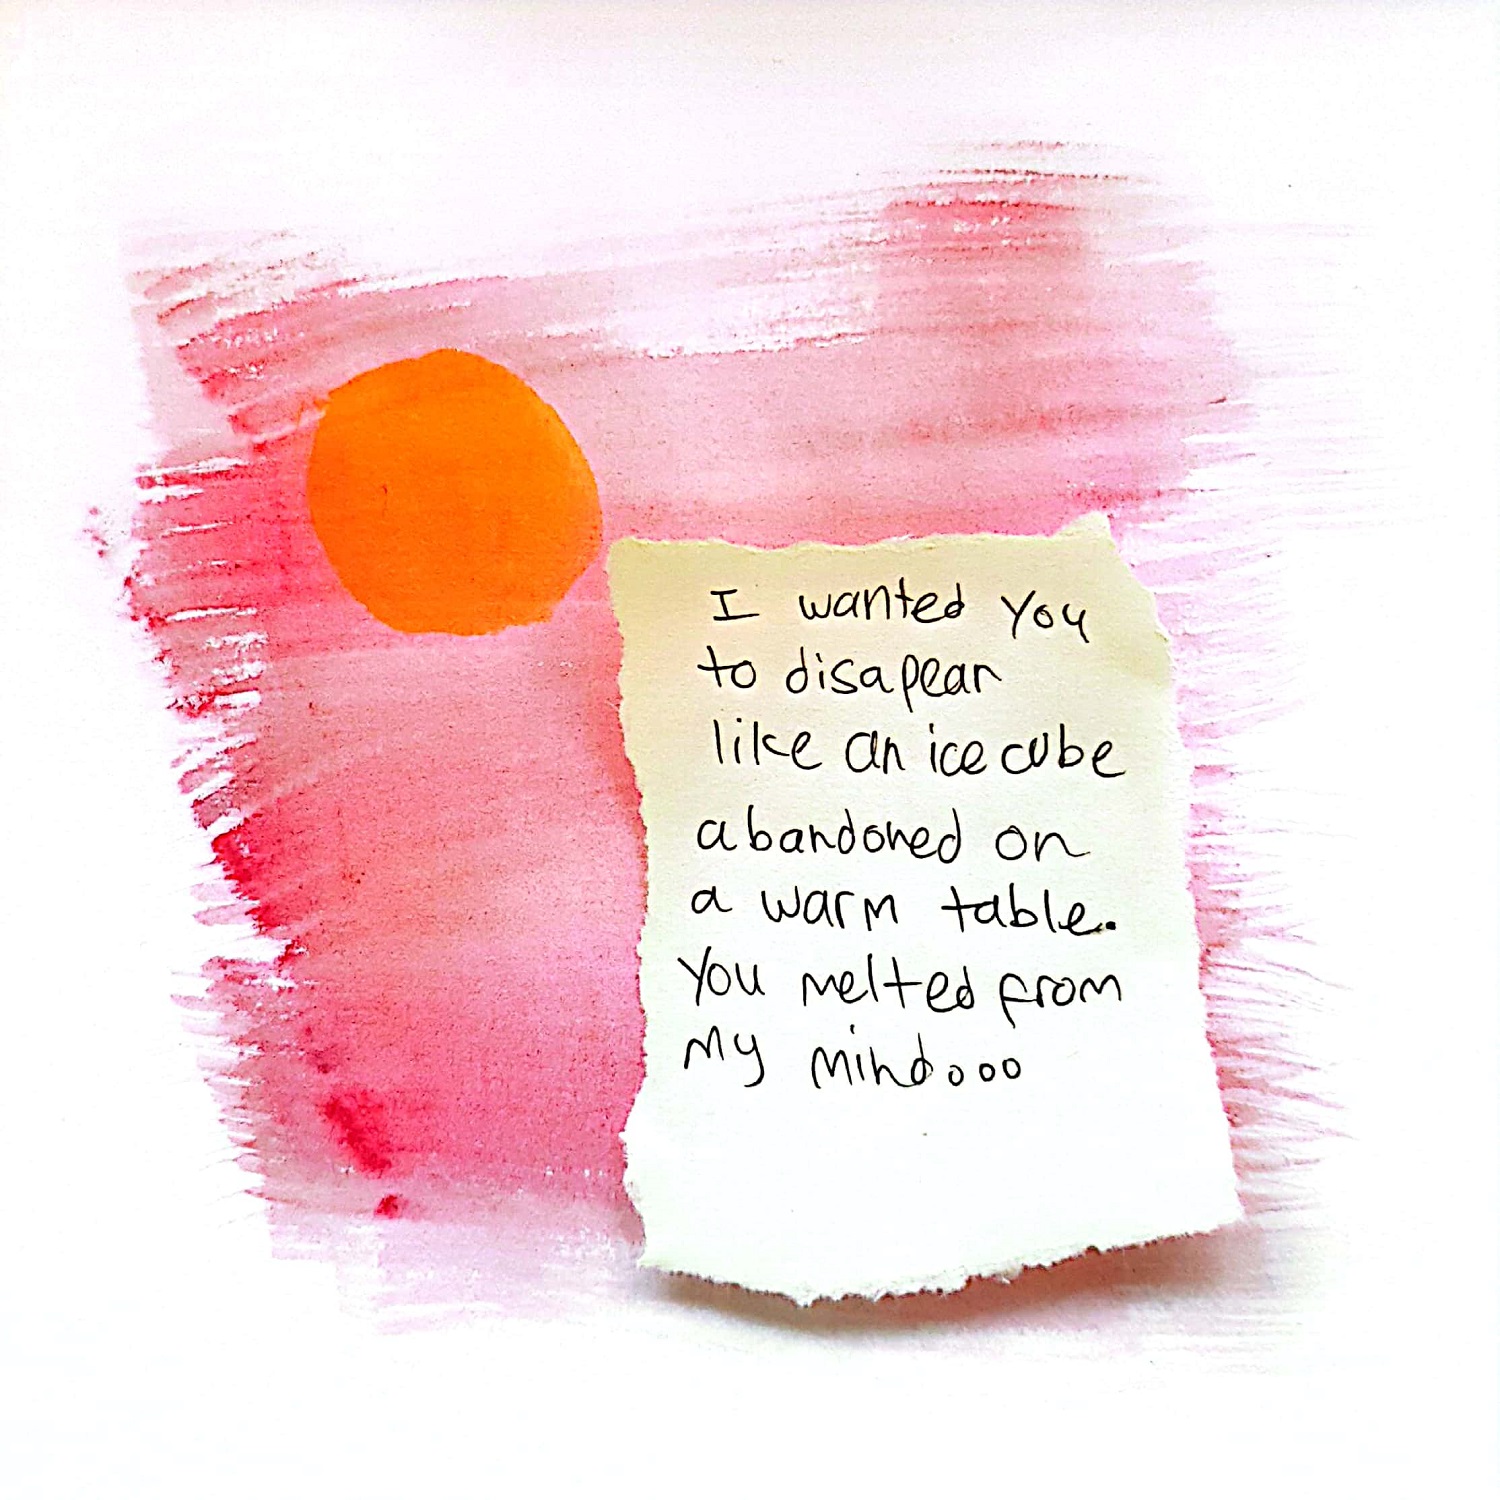 I wanted you
to disapear
like an ice cube
abandoned on
a warm table.
You melted from
my mind...